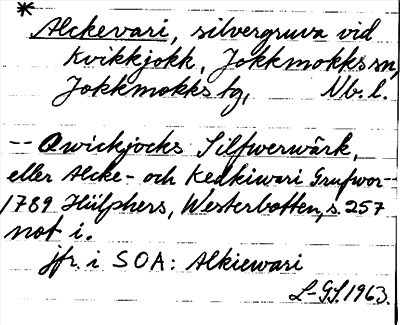 * Alckevari, silvergruva vid
Kvikkjokk, Jokkmokks sn,
Jokkmokks tg, Nb. l.
-- Qwickjocks Silfwerwärk,
eller Alcke- och Kedkiwari Grufwor --
1789 Hülphers, Westerbotten, s. 257
not i.
jfr. i SOA: Alkiewari
L-GL. 1963.